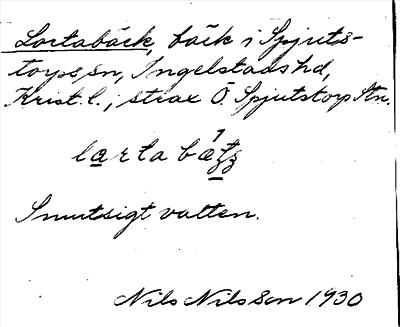 Lortabäck, bäck i Spjuts-
torps sn, Ingelstads hd,
Krist. l.; strax Ö. Spjutstorp Stn.
larta bætʒ
Smutsigt vatten.
Nils Nilsson 1930